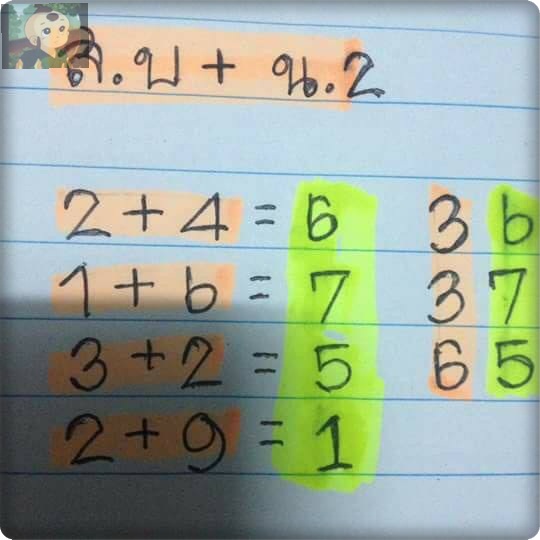 ส.บ + น.2
2 + 4 = 6 3 6
1 + 6 = 7 3 7
3 + 2 = 5 6 5
2 + 9 = 1